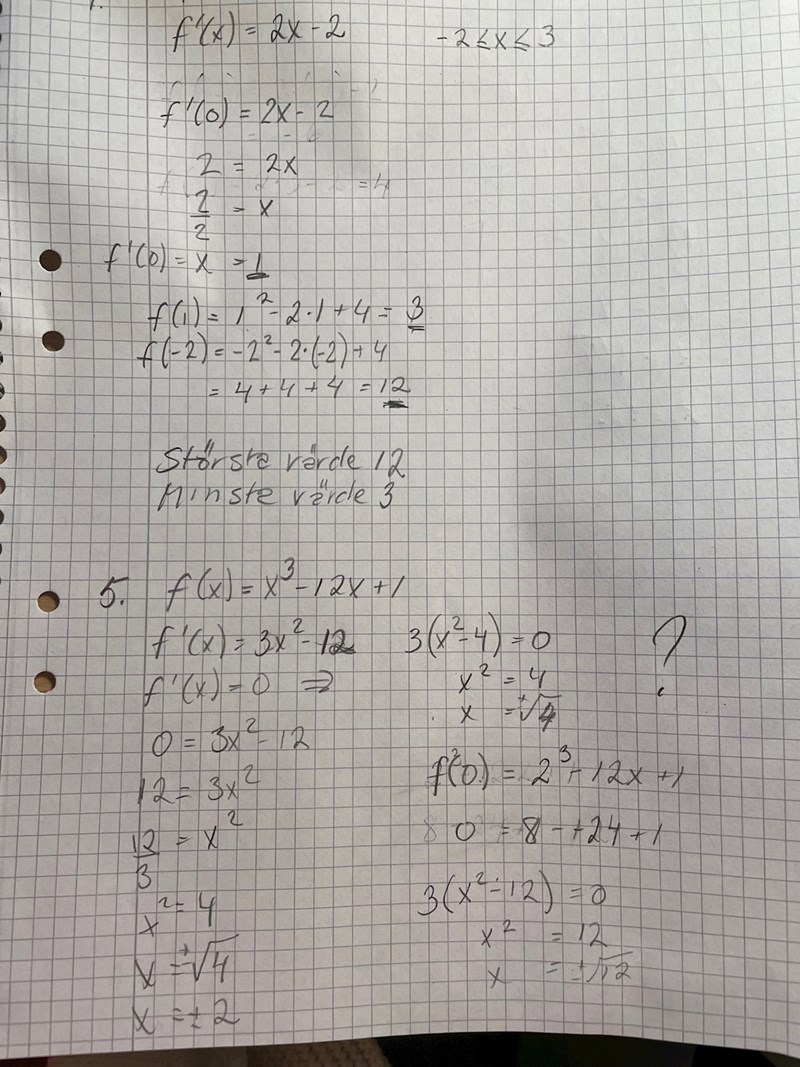 f'(x) = 2x - 2    -2 ≤ x ≤ 3
f'(0) = 2x - 2
2 = 2x
= 4
2/2 = x
f'(0) = x = 1
f(1) = 1² - 2·1 + 4 = 3
f(-2) = -2² - 2·(-2) + 4
= 4 + 4 + 4 = 12
Största värde 12
Minste värde 3
5. f(x) = x³ - 12x + 1
f'(x) = 3x² - 12
f'(x) = 0 ⇒
0 = 3x² - 12
12 = 3x²
12/3 = x²
x² = 4
x = ±√4
x = ± 2
3(x² - 4) = 0    ?
x² = 4
x = ±√4
2³ + 12x + 1
0 = 8 - +24 + 1
3(x² - 12) = 0
x² = 12
x = ±√12